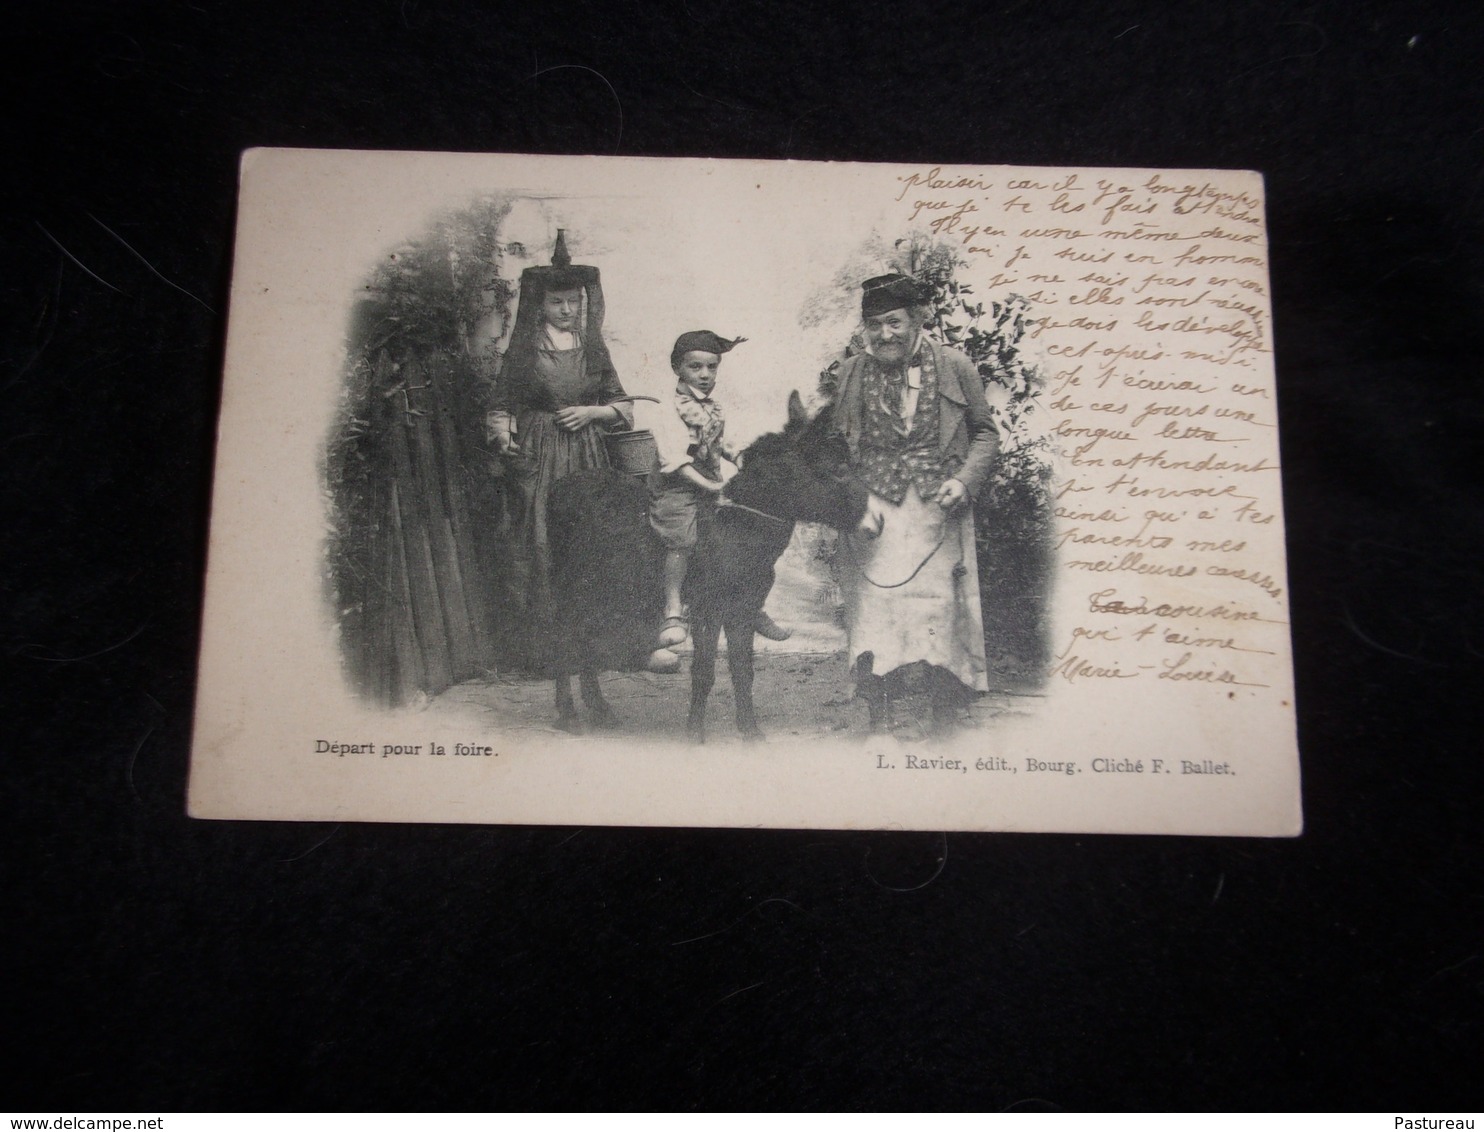 plaisir car il y a longtemps
que je te les fais attendre
Il y en a une même deux
où je suis en homme
je ne sais pas encore
si elles sont réussies
Je dois les développer
cet après-midi.
Je t'écrirai un
de ces jours une
longue lettre
En attendant
je t'envoie
ainsi qu'à tes
parents mes
meilleures caresses.
cousine
qui t'aime
Marie-Louise
Départ pour la foire.
L. Ravier, édit., Bourg. Cliché F. Ballet.
www.delcampe.net
Pastureau